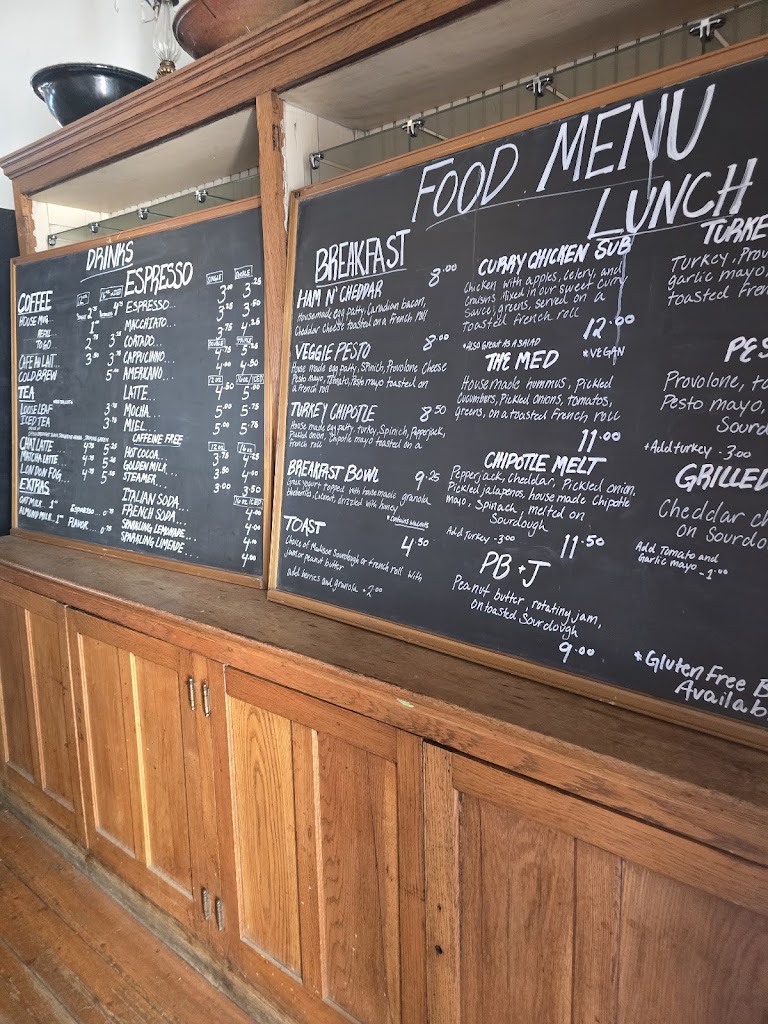 DRINKS
COFFEE
HOUSE MUG
REFILL
TO GO
CAFE AU LAIT
COLD BREW
TEA
LOOSE LEAF
ICED TEA
CHAI LATTE
MATCHA LATTE
LONDON FOG
EXTRAS
OAT MILK 1
ALMOND MILK 1
ESPRESSO 0.75
FLAVOR 0.75
ESPRESSO
SINGLE DOUBLE
ESPRESSO... 3.00 3.25
MACCHIATO... 3.25 3.50
CORTADO... 3.75 4.25
CAPPUCINO...
AMERICANO...
LATTE...
MOCHA...
MIEL...
CAFFEINE FREE
HOT COCOA...
GOLDEN MILK...
STEAMER...
ITALIAN SODA...
FRENCH SODA...
SPARKLING LEMONADE...
SPARKLING LIMEADE... 4.00
FOOD MENU
BREAKFAST
HAM N' CHEDDAR 8.00
Housemade egg patty, Canadian bacon,
Cheddar Cheese toasted on a french roll
VEGGIE PESTO 8.00
House made egg patty, Spinich, Provolone Cheese
Pesto mayo, Tomato, Pesto mayo toasted on
a french roll
TURKEY CHIPOTLE 8.50
House made egg patty, turkey, Spinich, Pepperjack,
Pickled onion, Chipotle mayo toasted on a
french roll
BREAKFAST BOWL 9.25
Greek yogurt topped with housemade granola
blueberries, Coconut, drizzled with honey
*Contains walnuts
TOAST 4.50
Choice of Madison Sourdough or french roll with
jam or peanut butter
add berries and granola + 2.00
LUNCH
CURRY CHICKEN SUB
Chicken with apples, celery, and
Craisins mixed in our sweet curry
Sauce, greens, served on a
toasted french roll
12.00
*ALSO GREAT AS A SALAD
THE MED *VEGAN
Housemade hummus, Pickled
Cucumbers, Pickled Onions, tomatos,
greens, on a toasted french roll
11.00
CHIPOTLE MELT
Pepperjack, Cheddar, Pickled onion,
Pickled jalapenos, house made Chipotle
mayo, Spinach, melted on
Sourdough
Add Turkey - 3.00
11.50
PB + J
Peanut butter, rotating jam,
on toasted Sourdough
9.00
TURKE
Turkey, Prov
garlic mayo,
toasted Fren
PES
Provolone, to
Pesto mayo,
Sourd
+ Add turkey - 3.00
GRILLED
Cheddar ch
on Sourdo
Add Tomato and
Garlic mayo - 1.00
*Gluten Free B
Availab